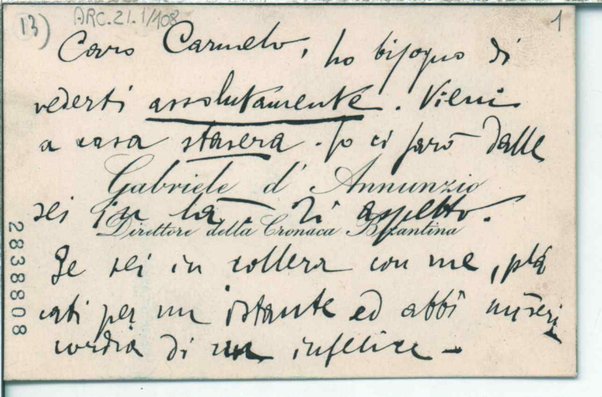 13)
ARC.21.1/108
1
Caro Carmelo, ho bisogno di
vederti assolutamente. Vieni
a casa stasera. Io ci sarò dalle
Gabriele d'Annunzio
sei in là. Ti aspetto.
Direttore della Cronaca Bizantina
Se sei in collera con me, plá
cati per un istante ed abbi miseri
cordia di un infelice –
2838808